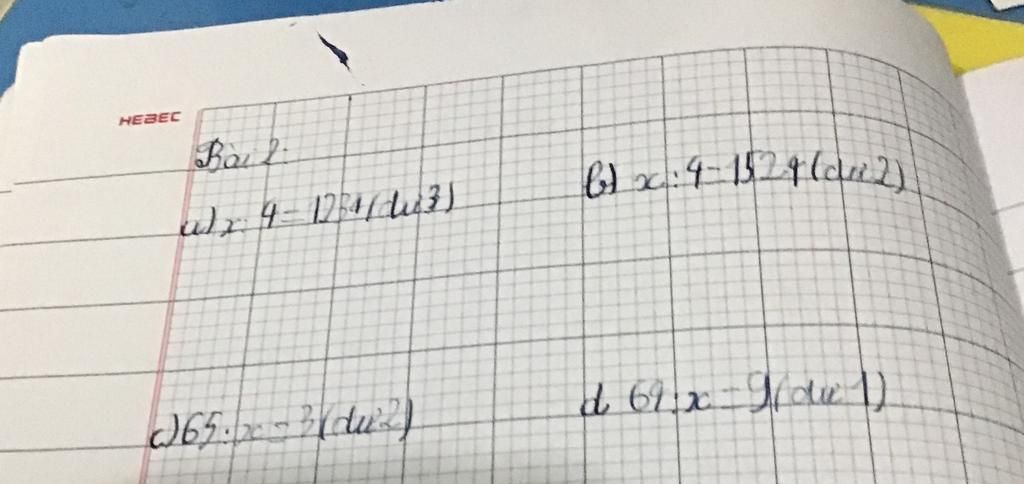 HEBEC
Bài 2:
a) x : 4 = 1234 (dư 3) b) x : 4 = 1524 (dư 2)
c) 65 : x = 3 (dư 2) d. 64 : x = 9 (dư 1)